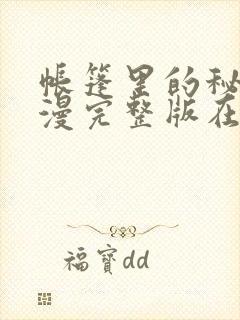 帐篷里的秘
漫完整版在
福寳dd